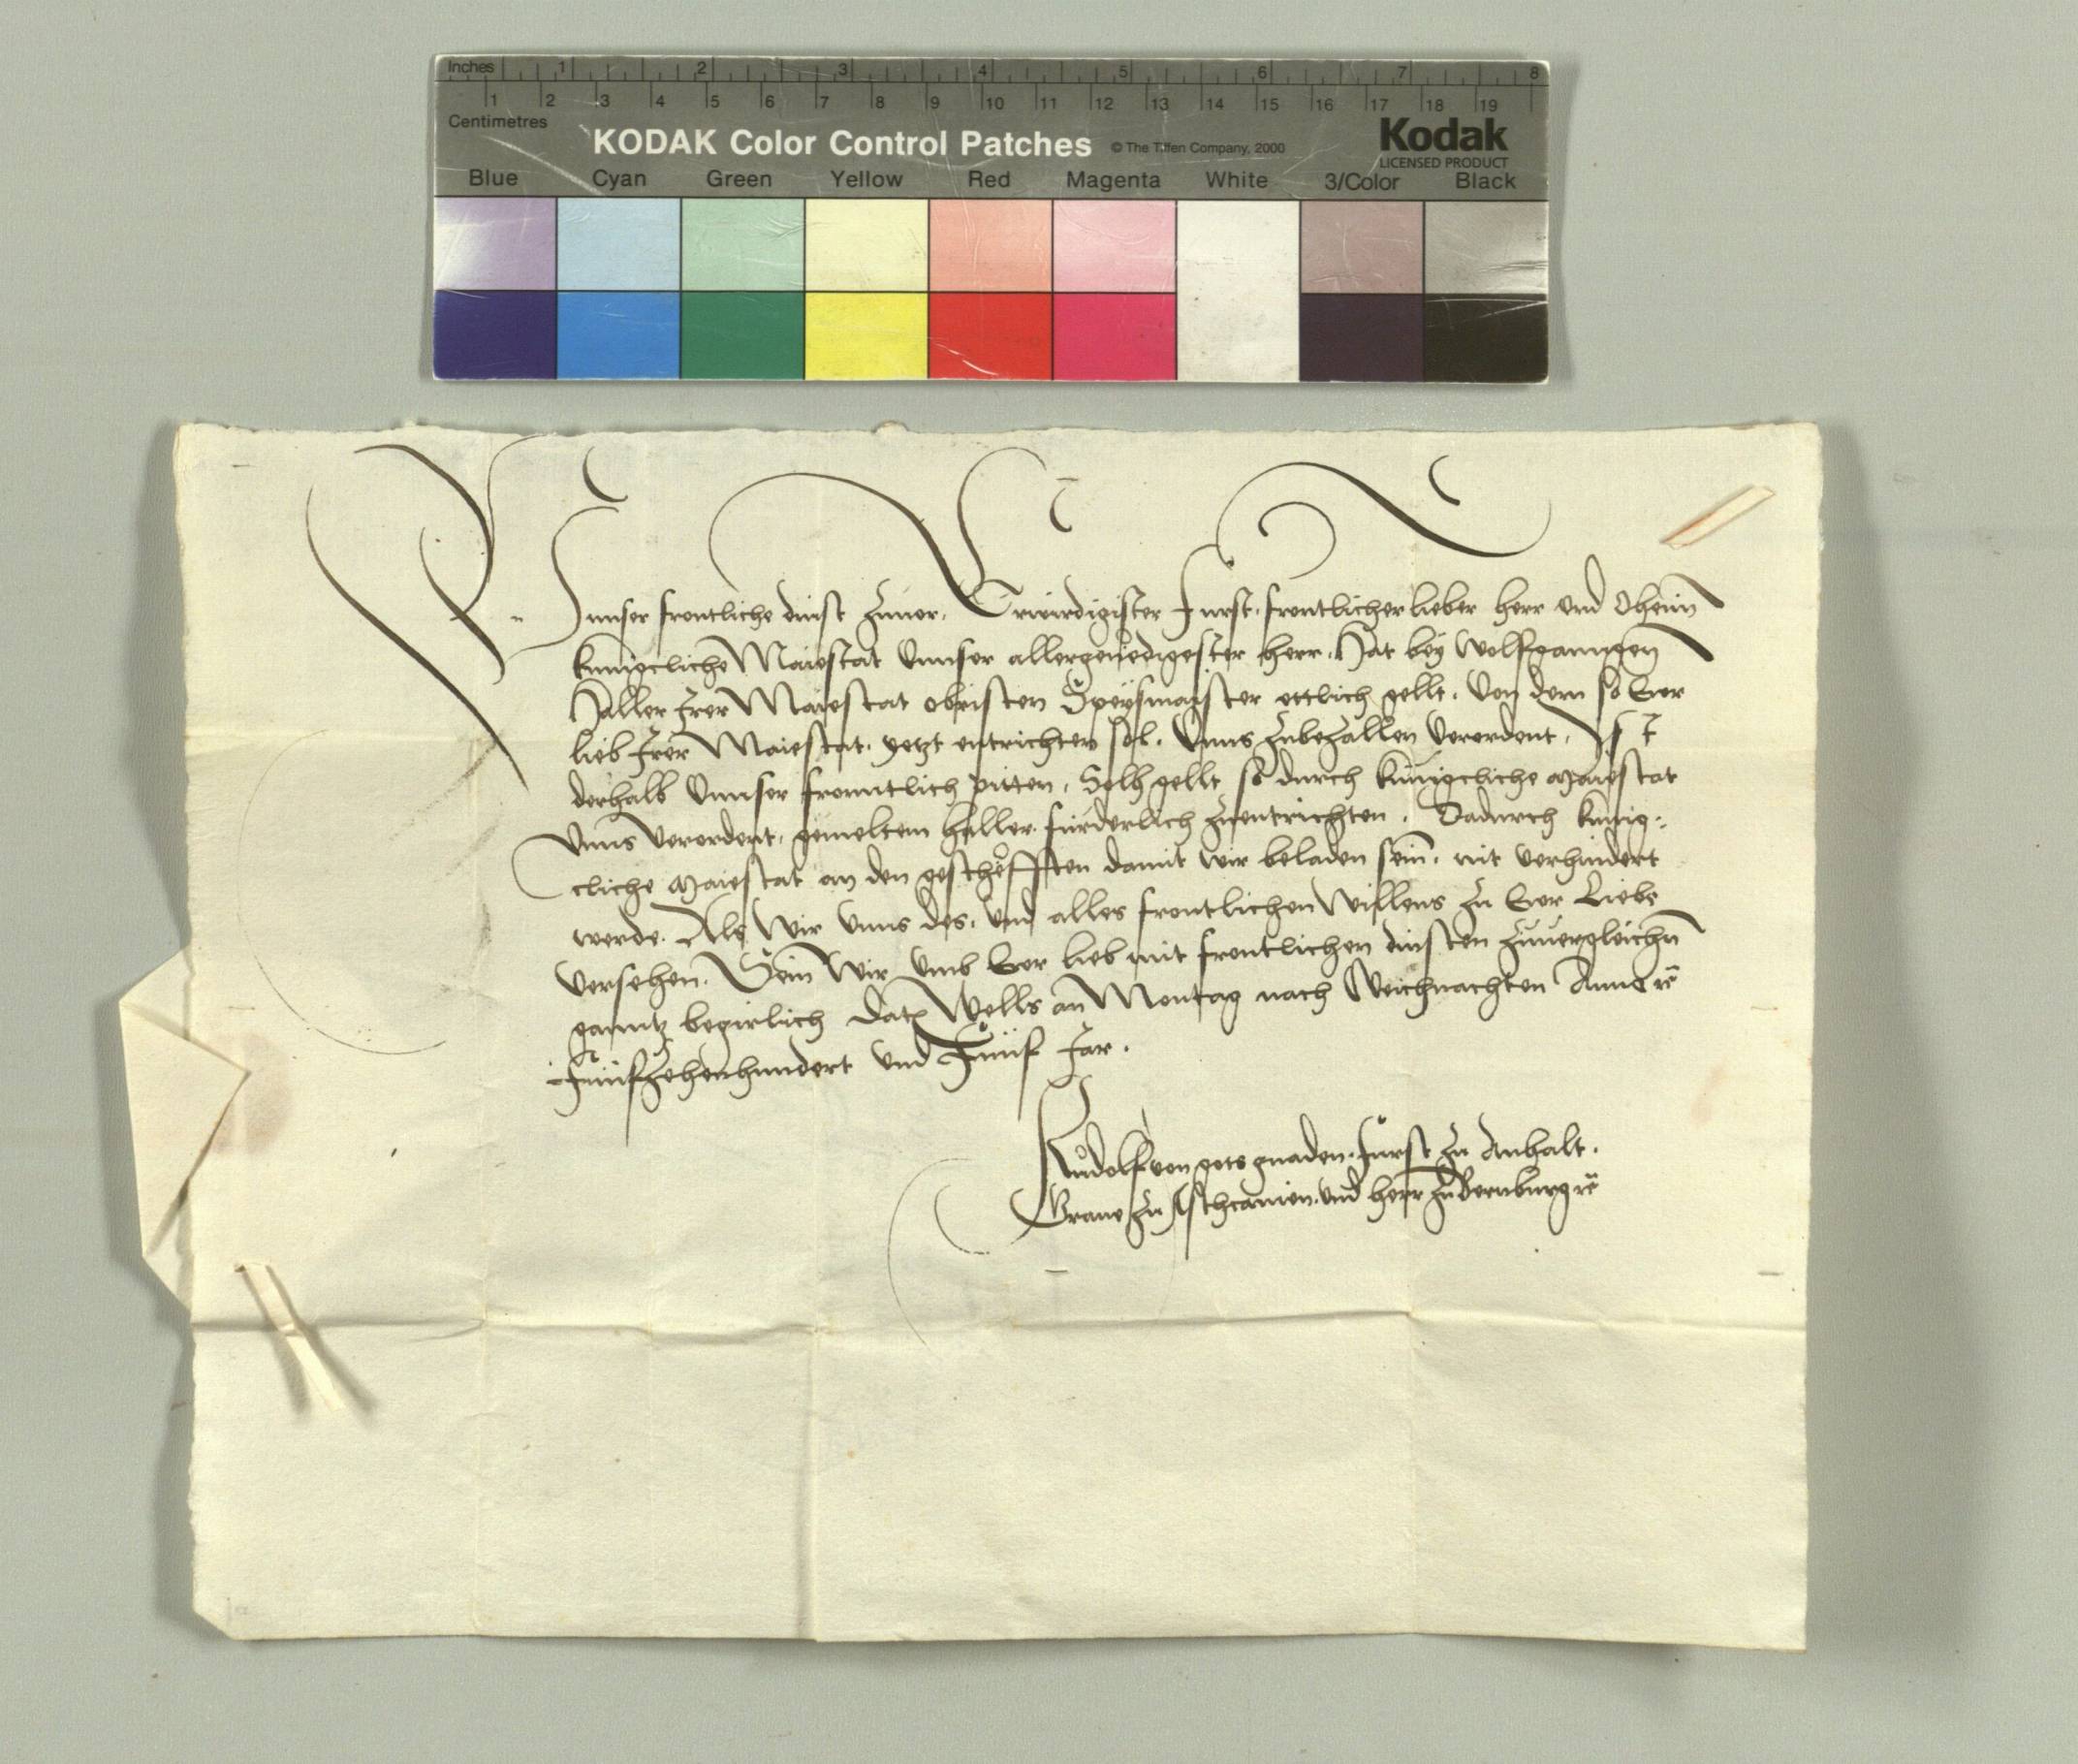 Inches 1 2 3 4 5 6 7 8
1 2 3 4 5 6 7 8 9 10 11 12 13 14 15 16 17 18 19
Centimetres
KODAK Color Control Patches © The Tiffen Company, 2000 Kodak
LICENSED PRODUCT
Blue Cyan Green Yellow Red Magenta White 3/Color Black
Vnnser frontliche dinst zuuor. Erwirdigister Furst. frontlicher lieber herr vnd Oheim
kunigcliche Maiestat Vnnser allergenedigester herr. Hat bey Wolfganngen
Haller Irer Maiestat obristen Speysmaister ettlich gellt. Von dem so Ewr
lieb Irer Maiestat. yetzt entrichten sol. Vnns zubezallen Verordent. Ist
derhalb Vnnser fronntlich pitten. Solh gellt so durch kunigcliche Maiestat
Vnns Verordent. gemeltem haller. furderlich zuentrichten. Dadurch kunig:
cliche Maiestat an den geschefften damit wir beladen sein. nit verhindert
werde. Als Wir Vnns des. vnd alles frontlichen Willens zu Ewr Liebe
versehen. Sein Wir Vmb Ewr lieb mit frontlichen dinsten zuuergleichn
ganntz begirlich Dat Wells an Montag nach Weichnachten Anno rc
Funfzehenhundert vnd Funf Jar.
Rudolf von gots gnaden. Furst zu Anhalt.
Graue zu Aschcanien. vnd herr zu Bernburg rc